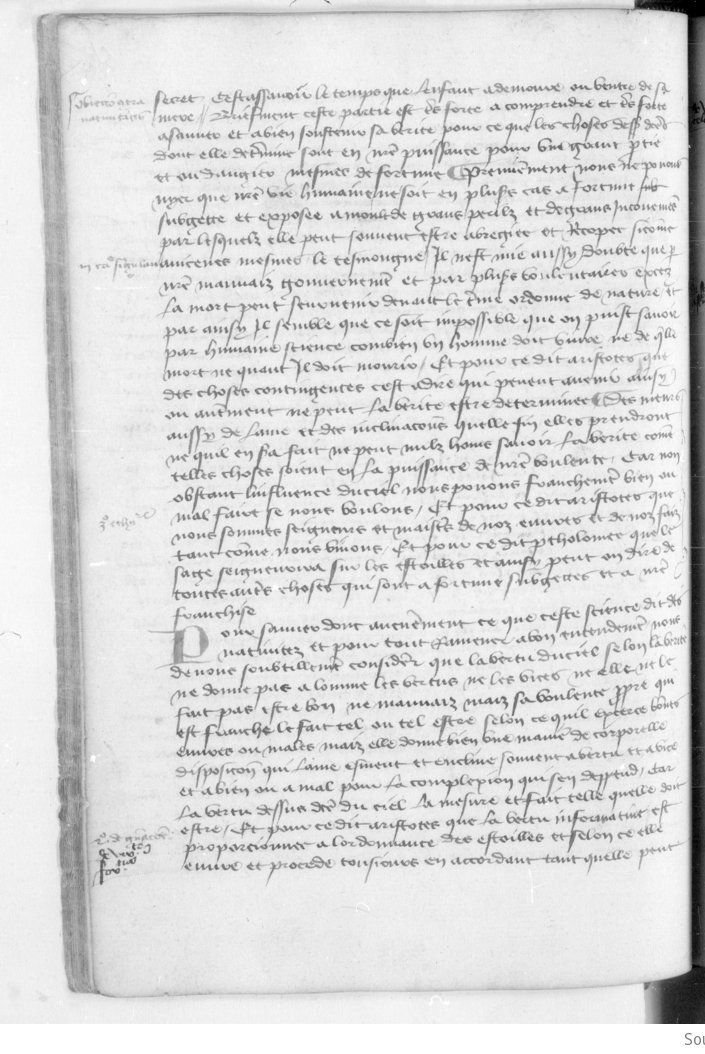 secret / Cestassavoir le temps que lenfant a demoure ou ventre de sa
mere // Briefment ceste partie est de forte a comprendre et de forte
a sauver et a bien soustenir sa verite pour ce que les choses dess dctes
dont elle determine sont en nre puissance pour une grant ptie
et ou dangier mesmes de fortune Premierment nous ne povons
nyer que nre vie humaine ne soit en plusrs cas a fortune
subgette et exposee a moult de grans perilz et de grans Inconvenies
par lesquelz elle peut souvent estre abregiee et sicome
avicenes mesmes le tesmongne / Il nest mie aussy doubte que p
nre mauvaiz gouvernement et par plusrs voulentaires exces
la mort peut seurvenir devant le tme ordonne de nature / Et
par ainsy Il semble que ce soit impossible que on puist savoir
par humaine science combien un homme doit vivre ne de qlle
mort ne quant Il doit mourir / Et pour ce dit aristotes que
des choses contingentes cest a dire qui pevent avenir ainsy
ou autrment ne peut la verite estre determinee Des meurs
aussy de lame et des inclinacons quelle fin elles prendront
ne quil en sra fait ne peut nulz homs savoir la verite come
telles choses soient en la puissance de nre voulente / Car non
obstant linfluence du ciel nous povons franchement bien ou
mal faire se nous voulons / Et pour ce dit aristotes que
nous sommes seigneurs et maistres de noz euvres et de noz faiz
tant come nous vivons / Et pour ce dit ptholomee que le
sage seigneurira sur les estoilles et ainsy peut on dire de
toutes autres choses qui sont a fortune subgettes et a nre
franchise
Pour sauver dont aucunement ce que ceste science dit des
nativitez et pour tout Ramener a bon entendement nous
devons soubtillement considerer que la vertu du ciel selon la verite
ne donne pas a lomme les vertus ne les vices ne elle ne le
fait pas estre bon ne mauvaiz maiz sa voulente ppre qui
est franche le fait tel ou tel estre selon ce quil exerce bones
euvres ou males maiz elle donne bien une maniere de corporelle
disposicon qui lame esment et encline souvent a vertu et a vice
et a bien ou a mal pour la complexion qui sen deppend / Car
la vertu dessus dce du ciel la mesure et fait telle quelle doit
estre / Et pour ce dit aristotes que la vertu informative est
proporcionnee a lordonnance des estoilles et selon ce elle
euvre et procede tousiours en accordant tant quelle peut